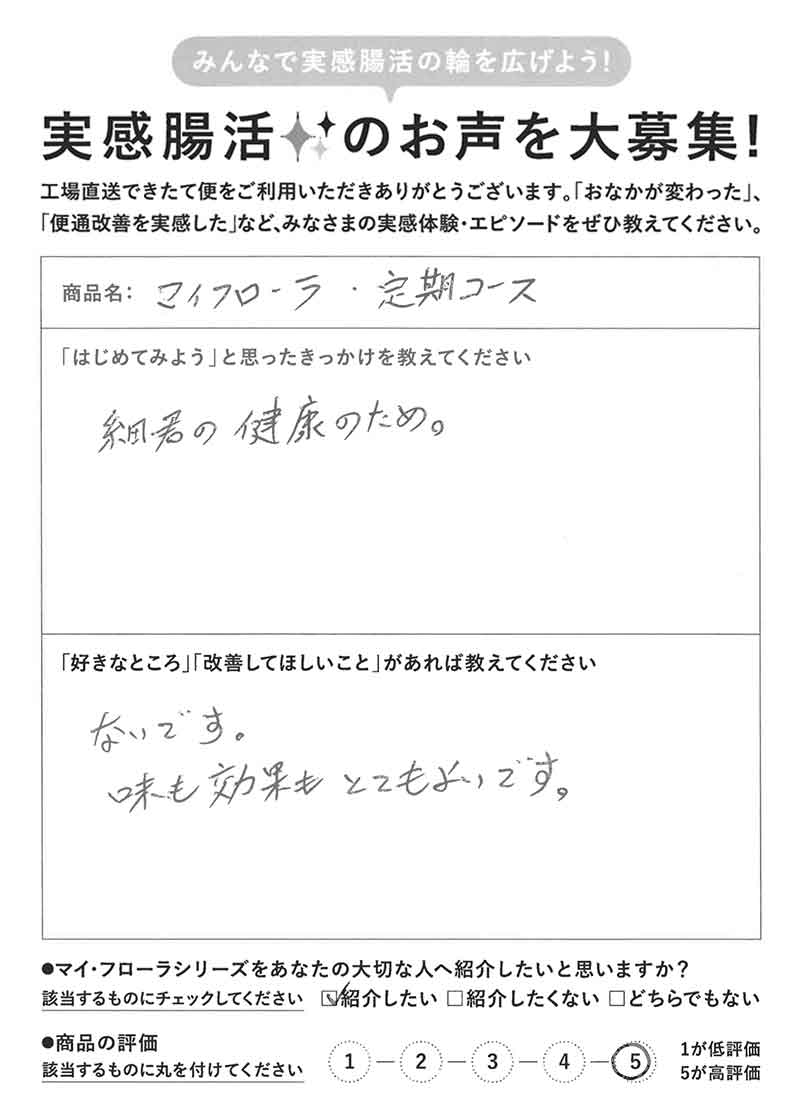 みんなで実感腸活の輪を広げよう!
実感腸活のお声を大募集!
工場直送できたて便をご利用いただきありがとうございます。「おなかが変わった」、
「便通改善を実感した」など、みなさまの実感体験・エピソードをぜひ教えてください。
商品名: マイフローラ・定期コース
「はじめてみよう」と思ったきっかけを教えてください
細君の健康のため。
「好きなところ」「改善してほしいこと」があれば教えてください
ないです。
味も効果もとてもよいです。
●マイ・フローラシリーズをあなたの大切な人へ紹介したいと思いますか?
該当するものにチェックしてください ☑紹介したい □紹介したくない □どちらでもない
●商品の評価
該当するものに丸を付けてください
1 — 2 — 3 — 4 — 5
1が低評価
5が高評価